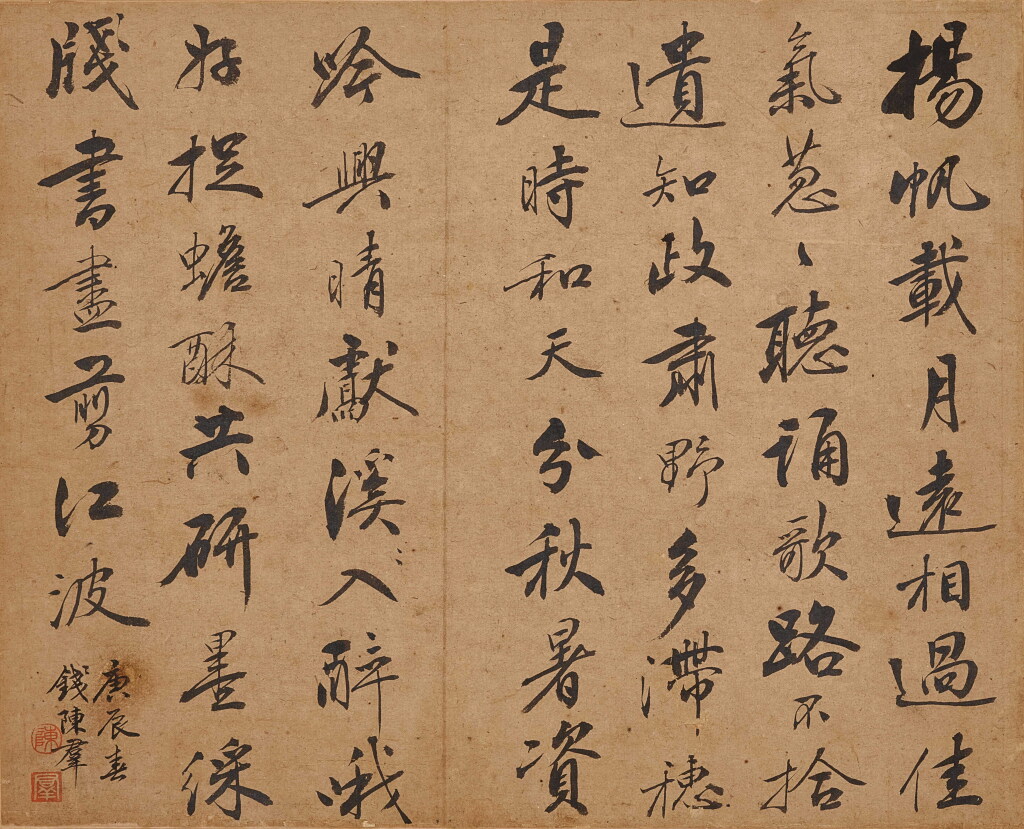 揚帆載月遠相過佳
氣葱〻聽誦歌路不拾
遺知政肅野多滯穗
是時和天分秋暑資
吟興晴獻溪入醉哦
好捉蟾酥共研墨綵
牋書盡剪江波
庚辰春
錢陳羣
陳
羣